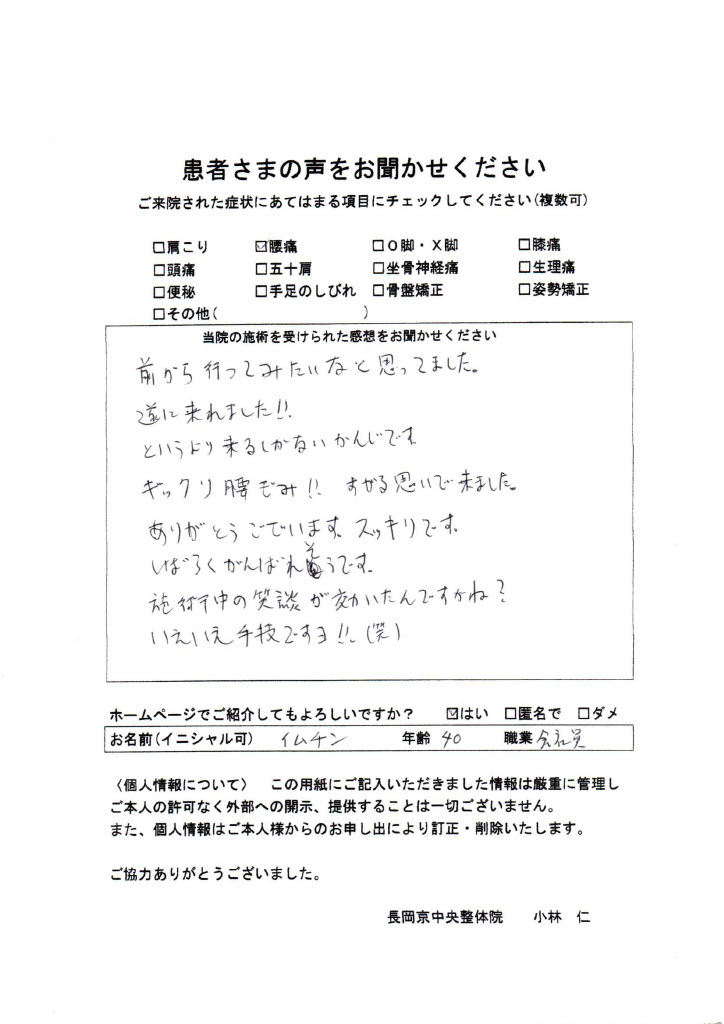 患者さまの声をお聞かせください
ご来院された症状にあてはまる項目にチェックしてください(複数可)
□肩こり ☑腰痛 □O脚・X脚 □膝痛
□頭痛 □五十肩 □坐骨神経痛 □生理痛
□便秘 □手足のしびれ □骨盤矯正 □姿勢矯正
□その他( )
当院の施術を受けられた感想をお聞かせください
前から行ってみたいなと思ってました。
遂に来れました!!
というより来るしかないかんじです
ギックリ腰ぎみ!! すがる思いで来ました。
ありがとうございます。スッキリです。
しばらくがんばれそうです。
施術中の笑談が効いたんですかね?
いえいえ手技ですヨ!!(笑)
ホームページでご紹介してもよろしいですか? ☑はい □匿名で □ダメ
お名前(イニシャル可) イムチン 年齢 40 職業 会社員
〈個人情報について〉 この用紙にご記入いただきました情報は厳重に管理し
ご本人の許可なく外部への開示、提供することは一切ございません。
また、個人情報はご本人様からのお申し出により訂正・削除いたします。
ご協力ありがとうございました。
長岡京中央整体院 小林 仁